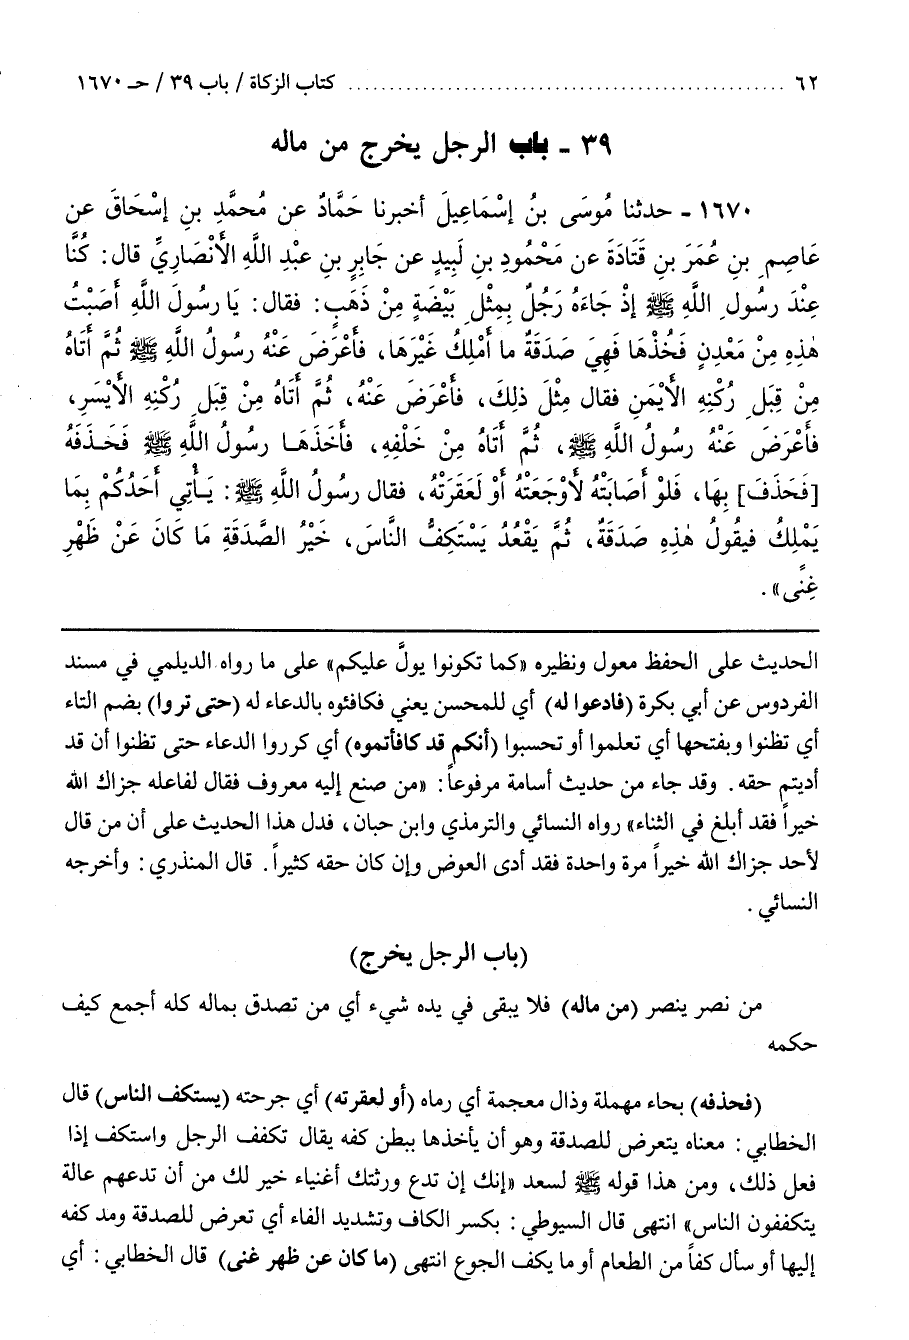 ٦٢ ........................................ كتاب الزكاة / باب ٣٩ / حـ ١٦٧٠
٣٩ - باب الرجل يخرج من ماله
١٦٧٠ - حدثنا مُوسَى بنُ إسْمَاعِيلَ أخبرنا حَمَّادٌ عن مُحمَّدِ بنِ إسْحَاقَ عن
عَاصِمِ بنِ عُمَرَ بنِ قَتَادَةَ عن مَحْمُودِ بنِ لَبِيدٍ عن جَابِرِ بنِ عبْدِ اللَّهِ الأنْصَارِيِّ قال: كُنَّا
عِنْدَ رسُولِ اللَّهِ ﷺ إذْ جَاءَهُ رَجُلٌ بِمِثْلِ بَيْضَةٍ مِنْ ذَهَبٍ: فقال: يَا رسُولَ اللَّهِ أصَبْتُ
هٰذِهِ مِنْ مَعْدِنٍ فَخُذْهَا فَهِيَ صَدَقَةٌ ما أمْلِكُ غَيْرَهَا، فأَعْرَضَ عَنْهُ رسُولُ اللَّهِ ﷺ ثُمَّ أتَاهُ
مِنْ قِبَلِ رُكْنِهِ الأَيْمَنِ فقال مِثْلَ ذلِكَ، فأَعْرَضَ عَنْهُ، ثُمَّ أتَاهُ مِنْ قِبَلِ رُكْنِهِ الأَيْسَرِ،
فأَعْرَضَ عَنْهُ رسُولُ اللَّهِ ﷺ، ثُمَّ أتَاهُ مِنْ خَلْفِهِ، فأَخَذَهَا رسُولُ اللَّهِ ﷺ فَحَذَفَهُ
[فَحَذَفَ] بِهَا، فَلَوْ أصَابَتْهُ لأَوْجَعَتْهُ أوْ لَعَقَرَتْهُ، فقال رسُولُ اللَّهِ ﷺ: يَأْتِي أَحَدُكُمْ بِمَا
يَمْلِكُ فيقُولُ هٰذِهِ صَدَقَةٌ، ثُمَّ يَقْعُدُ يَسْتَكِفُّ النَّاسَ، خَيْرُ الصَّدَقَةِ مَا كَانَ عَنْ ظَهْرِ
غِنًى».
الحديث على الحفظ معول ونظيره «كما تكونوا يولَّ عليكم» على ما رواه الديلمي في مسند
الفردوس عن أبي بكرة (فادعوا له) أي للمحسن يعني فكافئوه بالدعاء له (حتى تروا) بضم التاء
أي تظنوا وبفتحها أي تعلموا أو تحسبوا (أنكم قد كافأتموه) أي كرروا الدعاء حتى تظنوا أن قد
أديتم حقه. وقد جاء من حديث أسامة مرفوعاً: «من صنع إليه معروف فقال لفاعله جزاك الله
خيراً فقد أبلغ في الثناء» رواه النسائي والترمذي وابن حبان، فدل هذا الحديث على أن من قال
لأحد جزاك الله خيراً مرة واحدة فقد أدى العوض وإن كان حقه كثيراً. قال المنذري: وأخرجه
النسائي.
(باب الرجل يخرج)
من نصر ينصر (من ماله) فلا يبقى في يده شيء أي من تصدق بماله كله أجمع كيف
حكمه
(فحذفه) بحاء مهملة وذال معجمة أي رماه (أو لعقرته) أي جرحته (يستكف الناس) قال
الخطابي: معناه يتعرض للصدقة وهو أن يأخذها ببطن كفه يقال تكفف الرجل واستكف إذا
فعل ذلك، ومن هذا قوله ﷺ لسعد «إنك إن تدع ورثتك أغنياء خير لك من أن تدعهم عالة
يتكففون الناس» انتهى قال السيوطي: بكسر الكاف وتشديد الفاء أي تعرض للصدقة ومد كفه
إليها أو سأل كفاً من الطعام أو ما يكف الجوع انتهى (ما كان عن ظهر غنى) قال الخطابي: أي